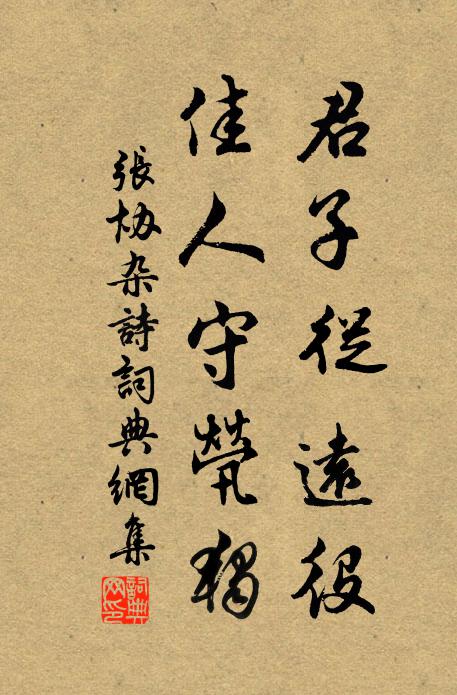 君子從遠役
佳人守煢獨
張協杂詩詞典網集
詞典網印